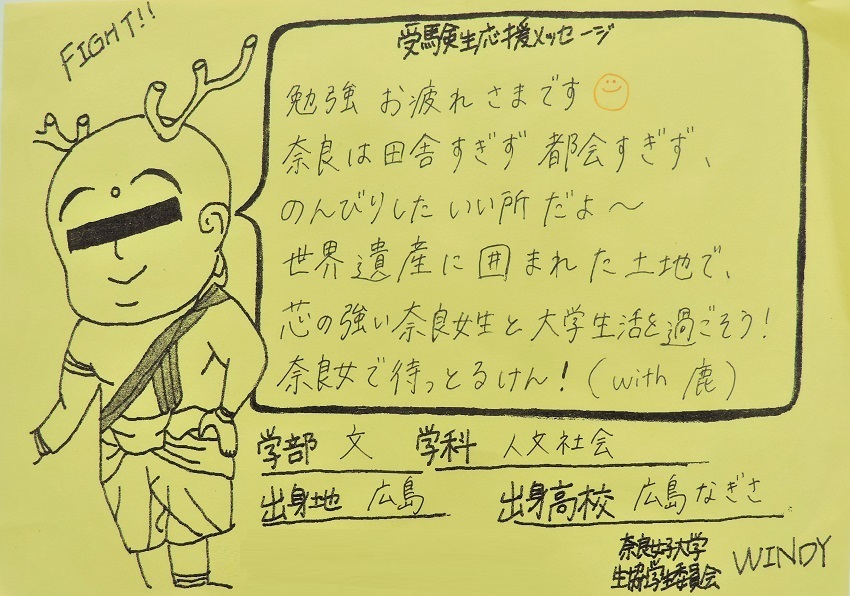 FIGHT!!
受験生応援メッセージ
勉強 お疲れさまです
奈良は田舎すぎず 都会すぎず、
のんびりした いい所だよ～
世界遺産に囲まれた土地で、
芯の強い奈良女生と大学生活を過ごそう!
奈良女で待っとるけん!(with 鹿)
学部 文 学科 人文社会
出身地 広島 出身高校 広島なぎさ
奈良女子大学
生協学生委員会 WINDY